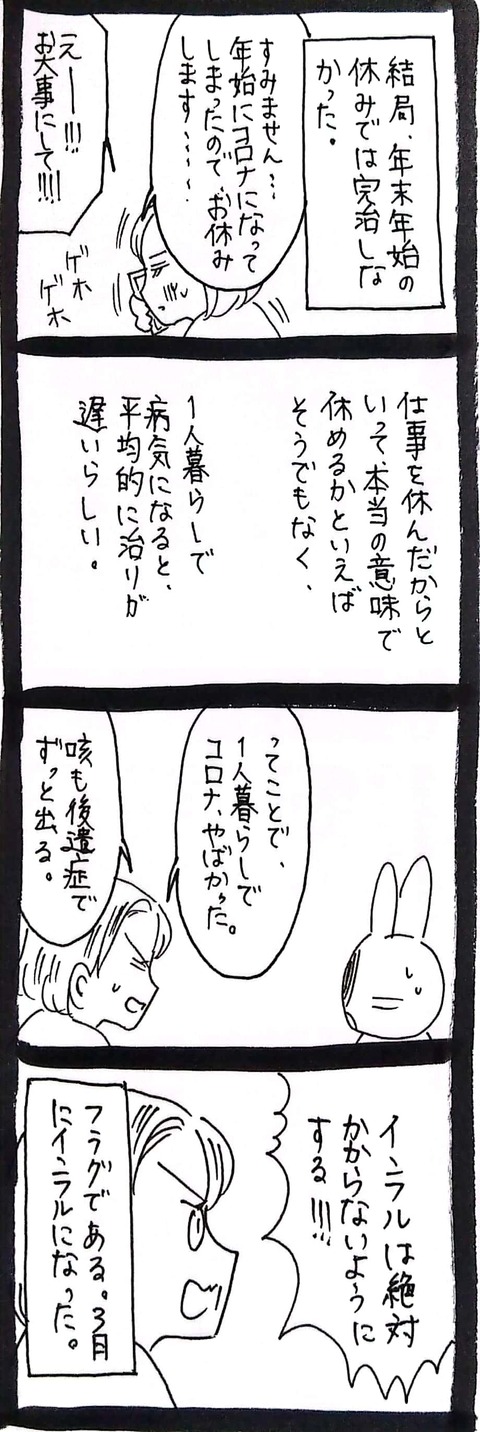 結局、年末年始の
休みでは完治しな
かった。
すみません…
年始にコロナになって
しまったので、お休み
します……
えー!!!
お大事にして!!!!
ゲホ
ゲホ
仕事を休んだからと
いって、本当の意味で
休めるかといえば
そうでもなく、
1人暮らしで
病気になると、
平均的に治りが
遅いらしい。
ってことで、
1人暮らしで
コロナ、やばかった。
咳も後遺症で
ずっと出る。
インフルは絶対
かからないように
する!!!
フラグである。3月
にインフルになった。